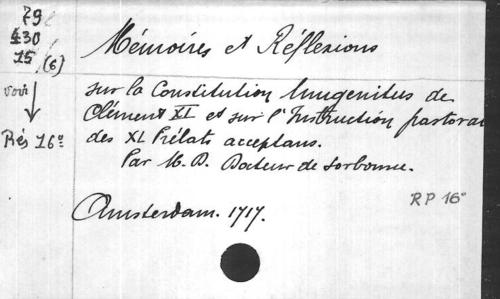 79
430
15 (6)
voir
Rés 16°
Mémoires et Réflexions
sur la Constitution Unigenitus de
Clément XI et sur l'Instruction pastorale
des XL Prélats acceptans.
Par M. D. Docteur de Sorbonne.
Amsterdam. 1717.
RP 16°